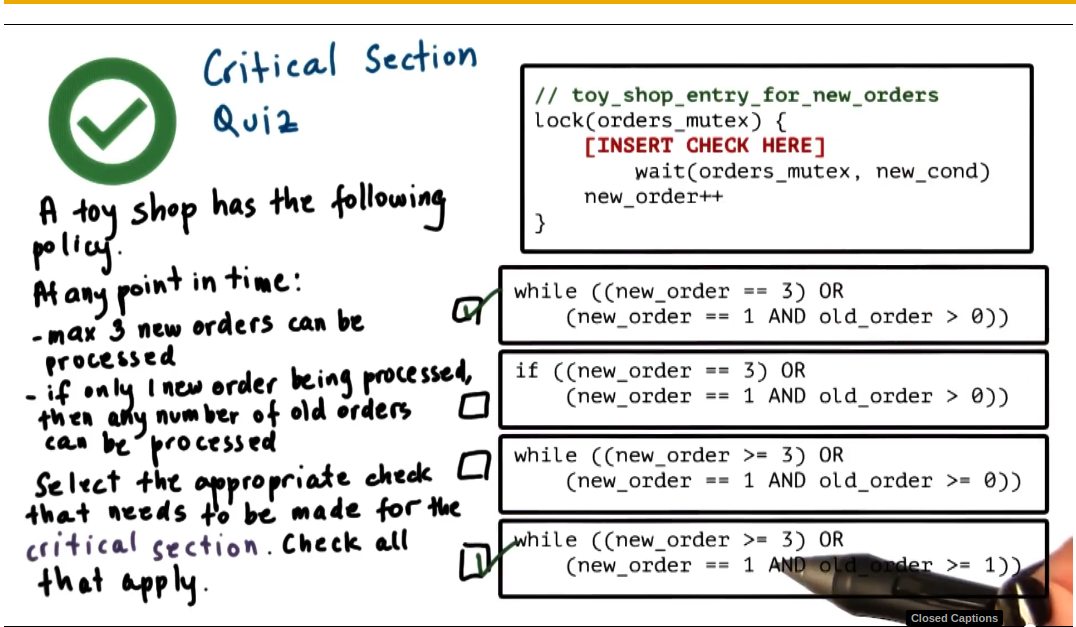 Critical Section
Quiz
A toy shop has the following
policy.
At any point in time:
- max 3 new orders can be
processed
- if only 1 new order being processed,
then any number of old orders
can be processed
Select the appropriate check
that needs to be made for the
critical section. Check all
that apply.
// toy_shop_entry_for_new_orders
lock(orders_mutex) {
[INSERT CHECK HERE]
wait(orders_mutex, new_cond)
new_order++
}
while ((new_order == 3) OR
(new_order == 1 AND old_order > 0))
if ((new_order == 3) OR
(new_order == 1 AND old_order > 0))
while ((new_order >= 3) OR
(new_order == 1 AND old_order >= 0))
while ((new_order >= 3) OR
(new_order == 1 AND old_order >= 1))
Closed Captions